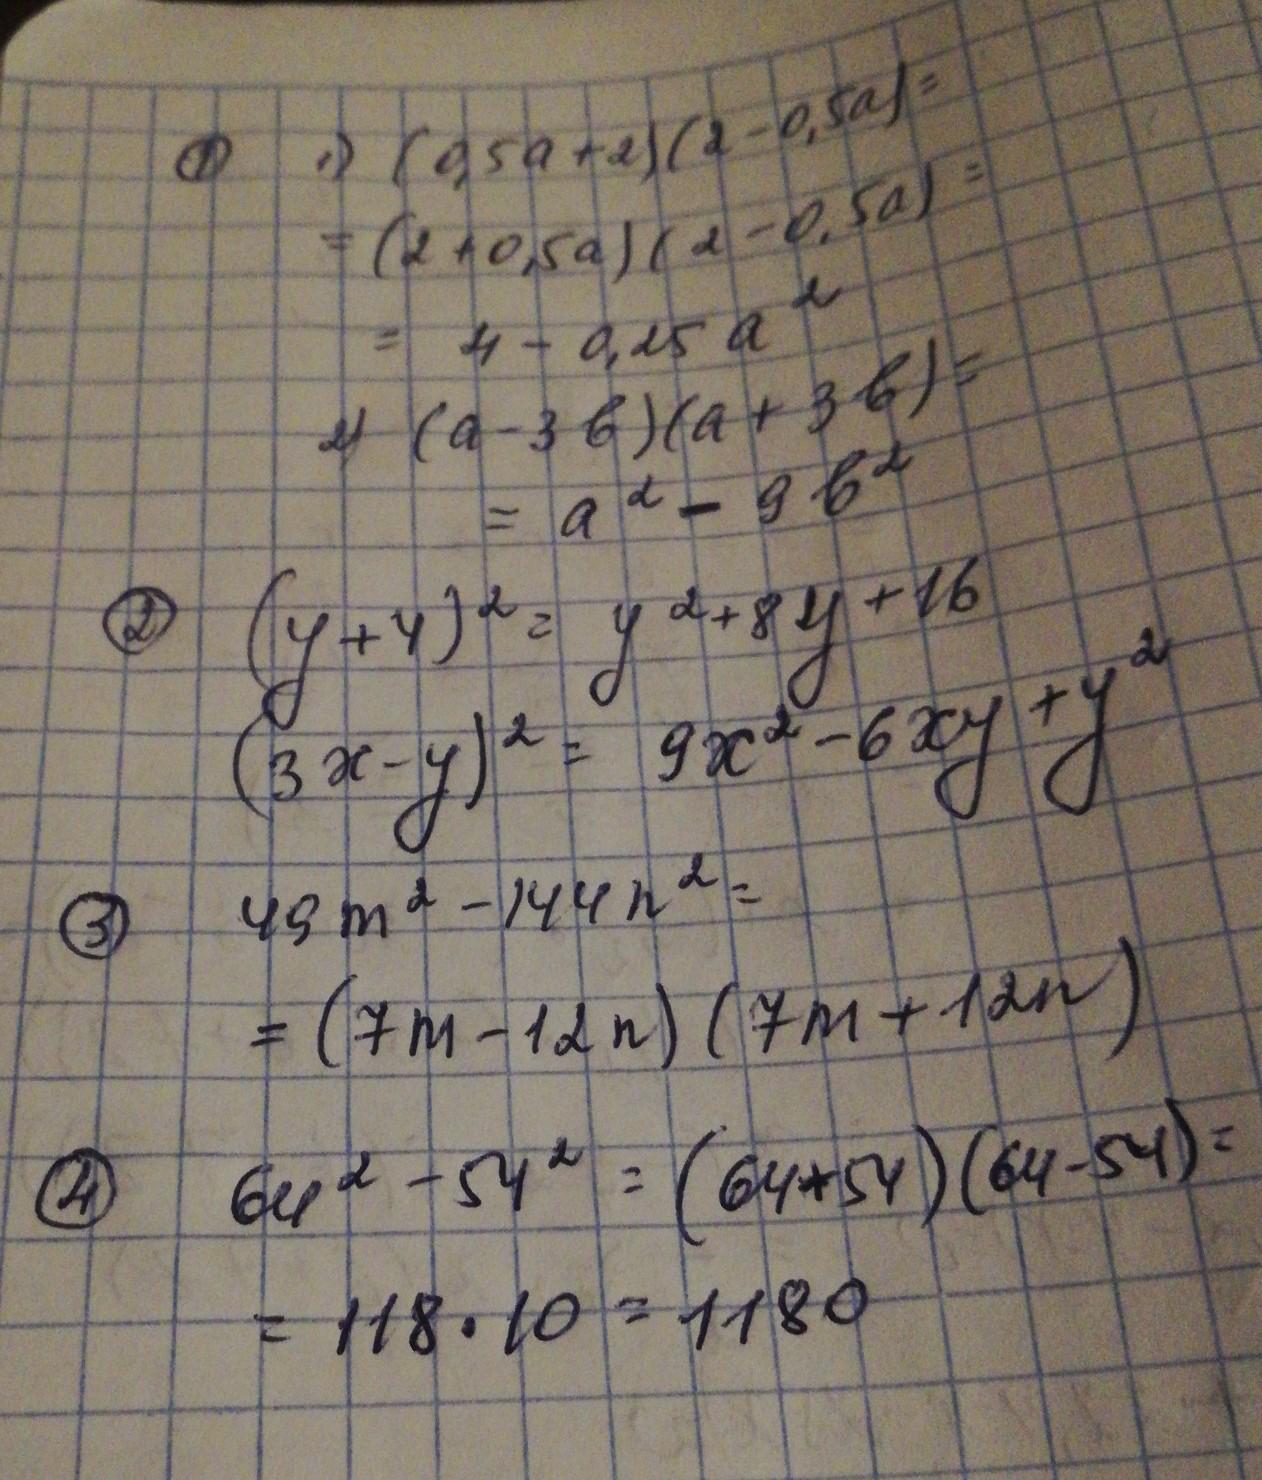 ① 1) (0,5a+2)(2-0,5a)=
=(2+0,5a)(2-0,5a)=
= 4-0,25a²
2) (a-3b)(a+3b)=
= a²-9b²
② (y+4)²= y²+8y+16
(3x-y)²= 9x²-6xy+y²
③ 49m²-144n²=
=(7m-12n)(7m+12n)
④ 64²-54²=(64+54)(64-54)=
= 118·10=1180